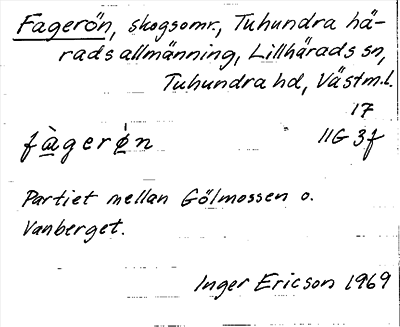 Fagerön, skogsomr., Tuhundra hä-
rads allmänning, Lillhärads sn,
Tuhundra hd, Västm.l.
17
fàgerø̍n 11G 3f
Partiet mellan Gölmossen o.
Vanberget.
Inger Ericson 1969